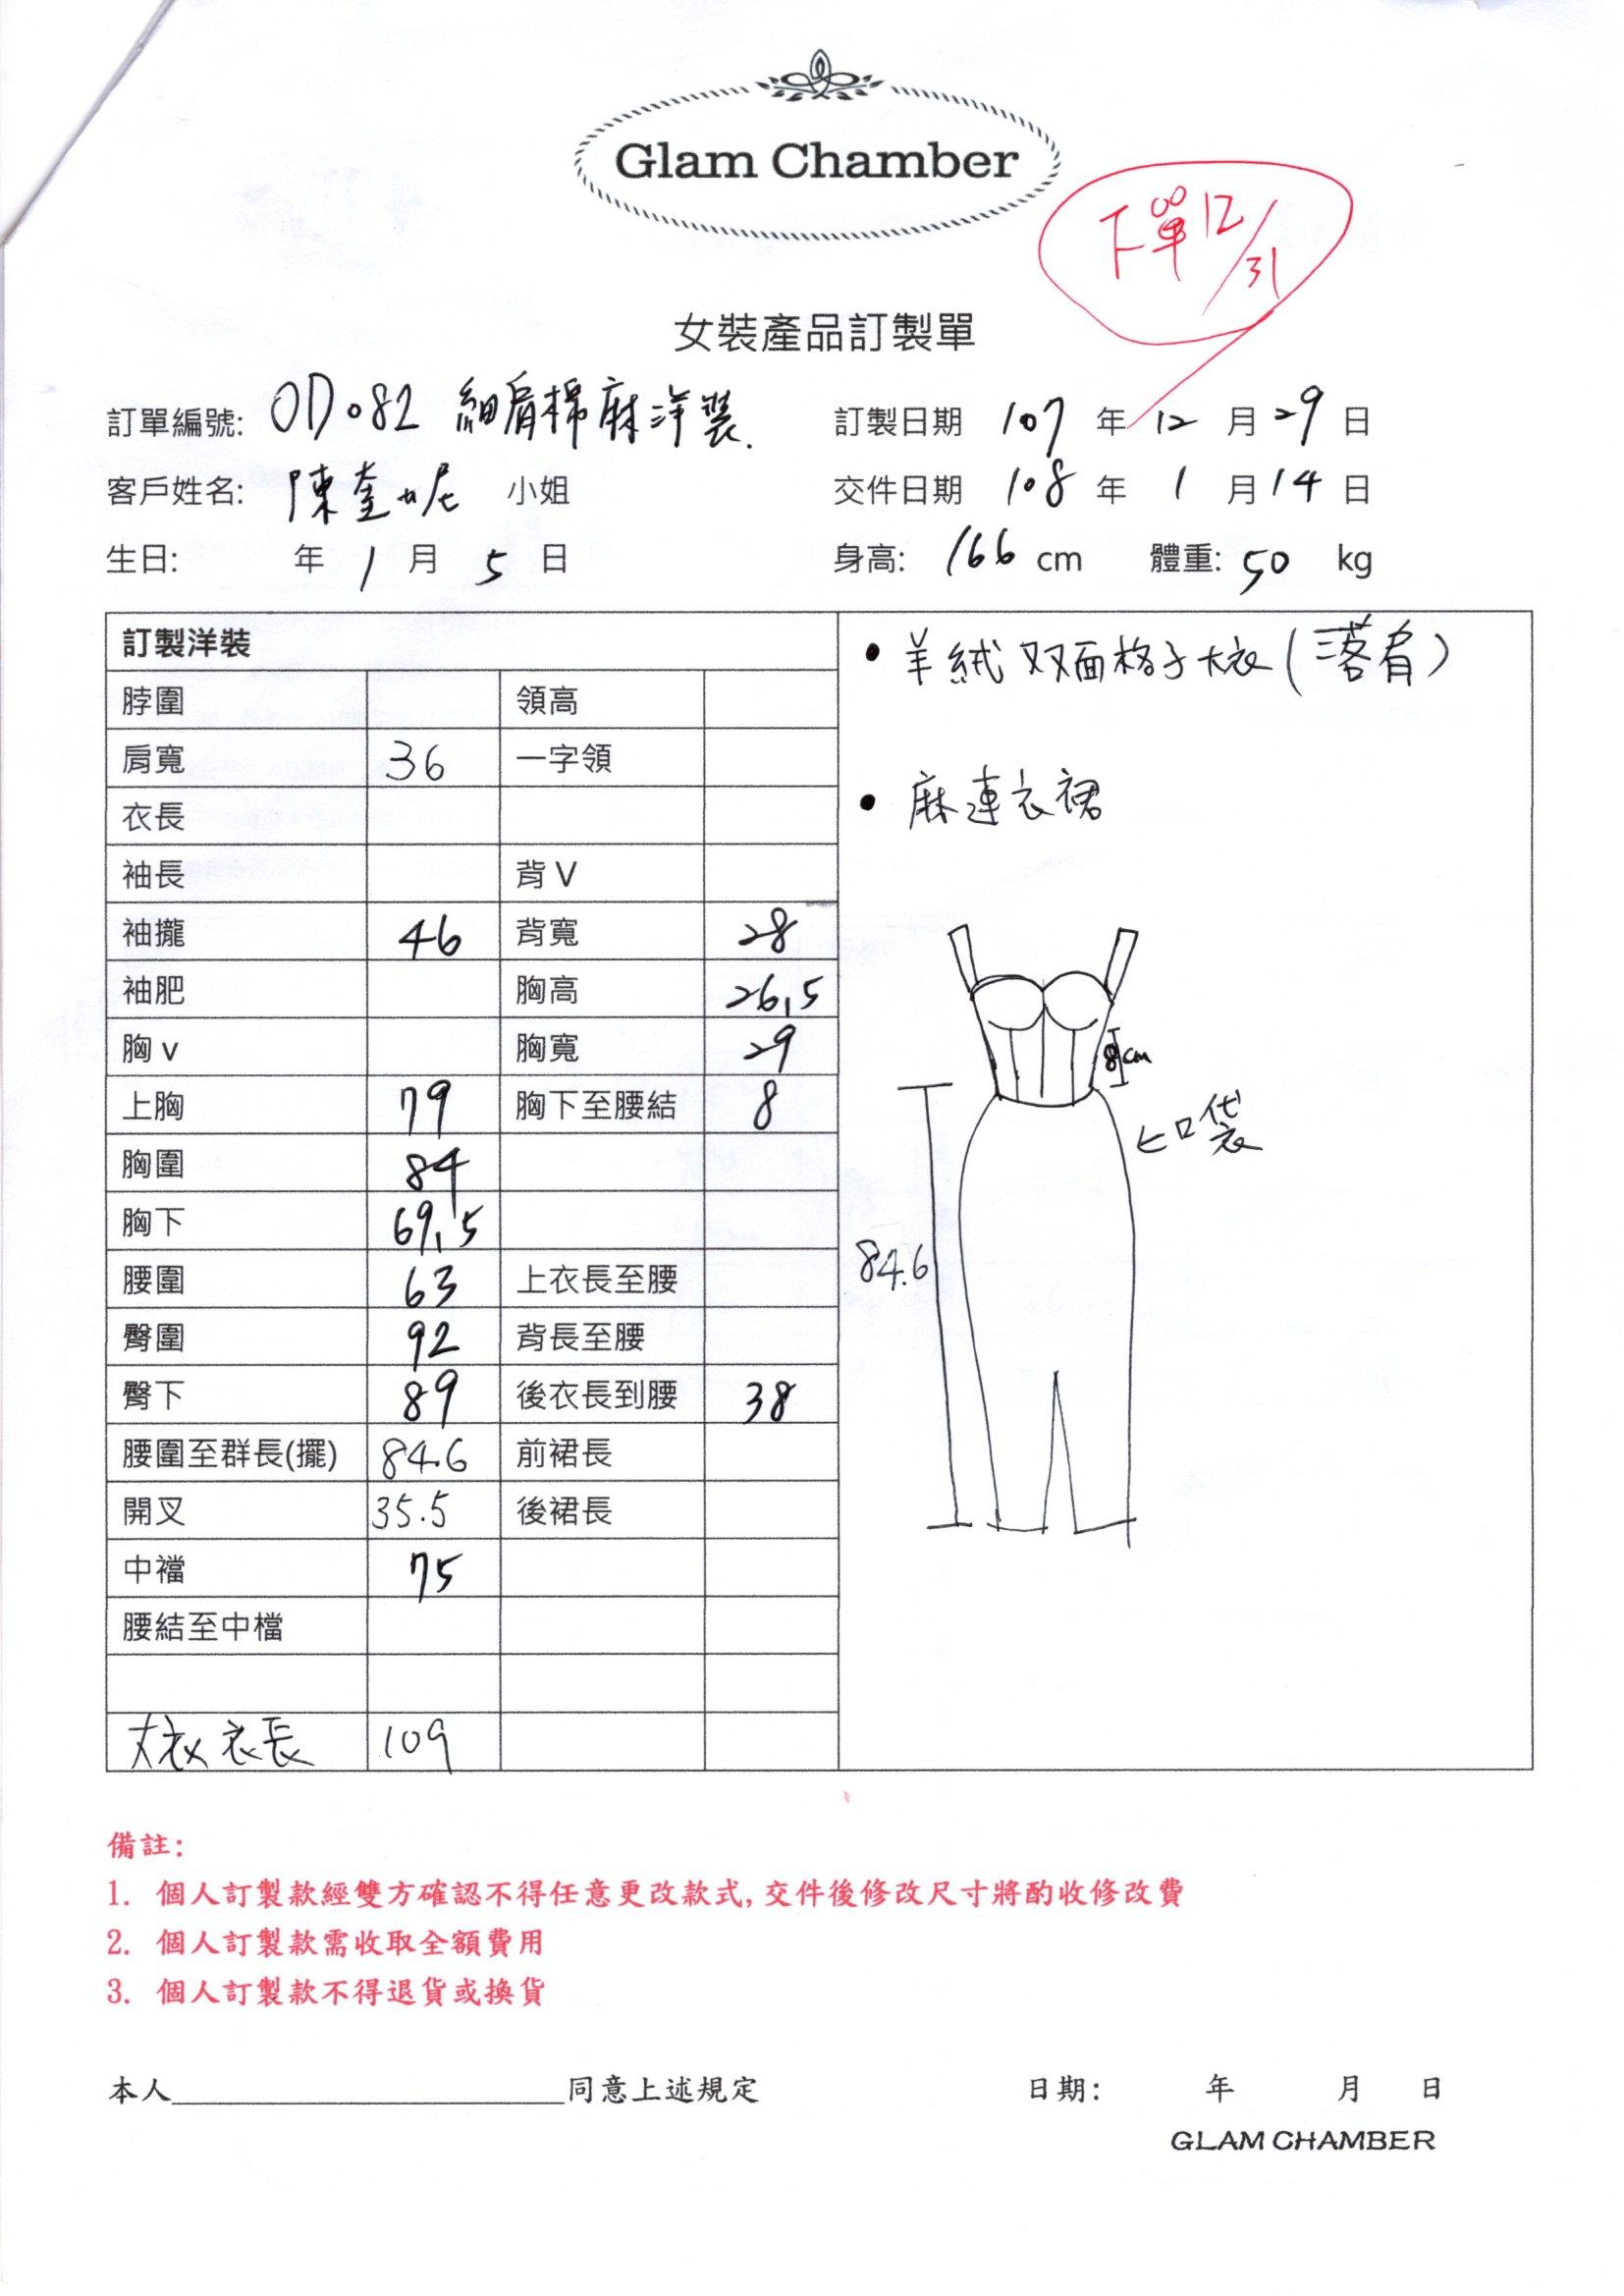 Glam Chamber
下單12/31
女裝產品訂製單
訂單編號: OD082 細肩棉麻洋裝. 訂製日期 107 年 12 月 29 日
客戶姓名: 陳奎妮 小姐 交件日期 108 年 1 月 14 日
生日: 年 1 月 5 日 身高: 166 cm 體重: 50 kg
訂製洋裝
脖圍 領高
肩寬 36 一字領
衣長
袖長 背 V
袖攏 46 背寬 28
袖肥 胸高 26,5
胸 v 胸寬 29
上胸 79 胸下至腰結 8
胸圍 84
胸下 69,5
腰圍 63 上衣長至腰
臀圍 92 背長至腰
臀下 89 後衣長到腰 38
腰圍至群長(擺) 84.6 前裙長
開叉 35.5 後裙長
中襠 75
腰結至中檔
大衣衣長 109
• 羊絨双面格子大衣(落肩)
• 麻連衣裙
8cm
口袋
84.6
備註:
1. 個人訂製款經雙方確認不得任意更改款式, 交件後修改尺寸將酌收修改費
2. 個人訂製款需收取全額費用
3. 個人訂製款不得退貨或換貨
本人 同意上述規定 日期: 年 月 日
GLAM CHAMBER